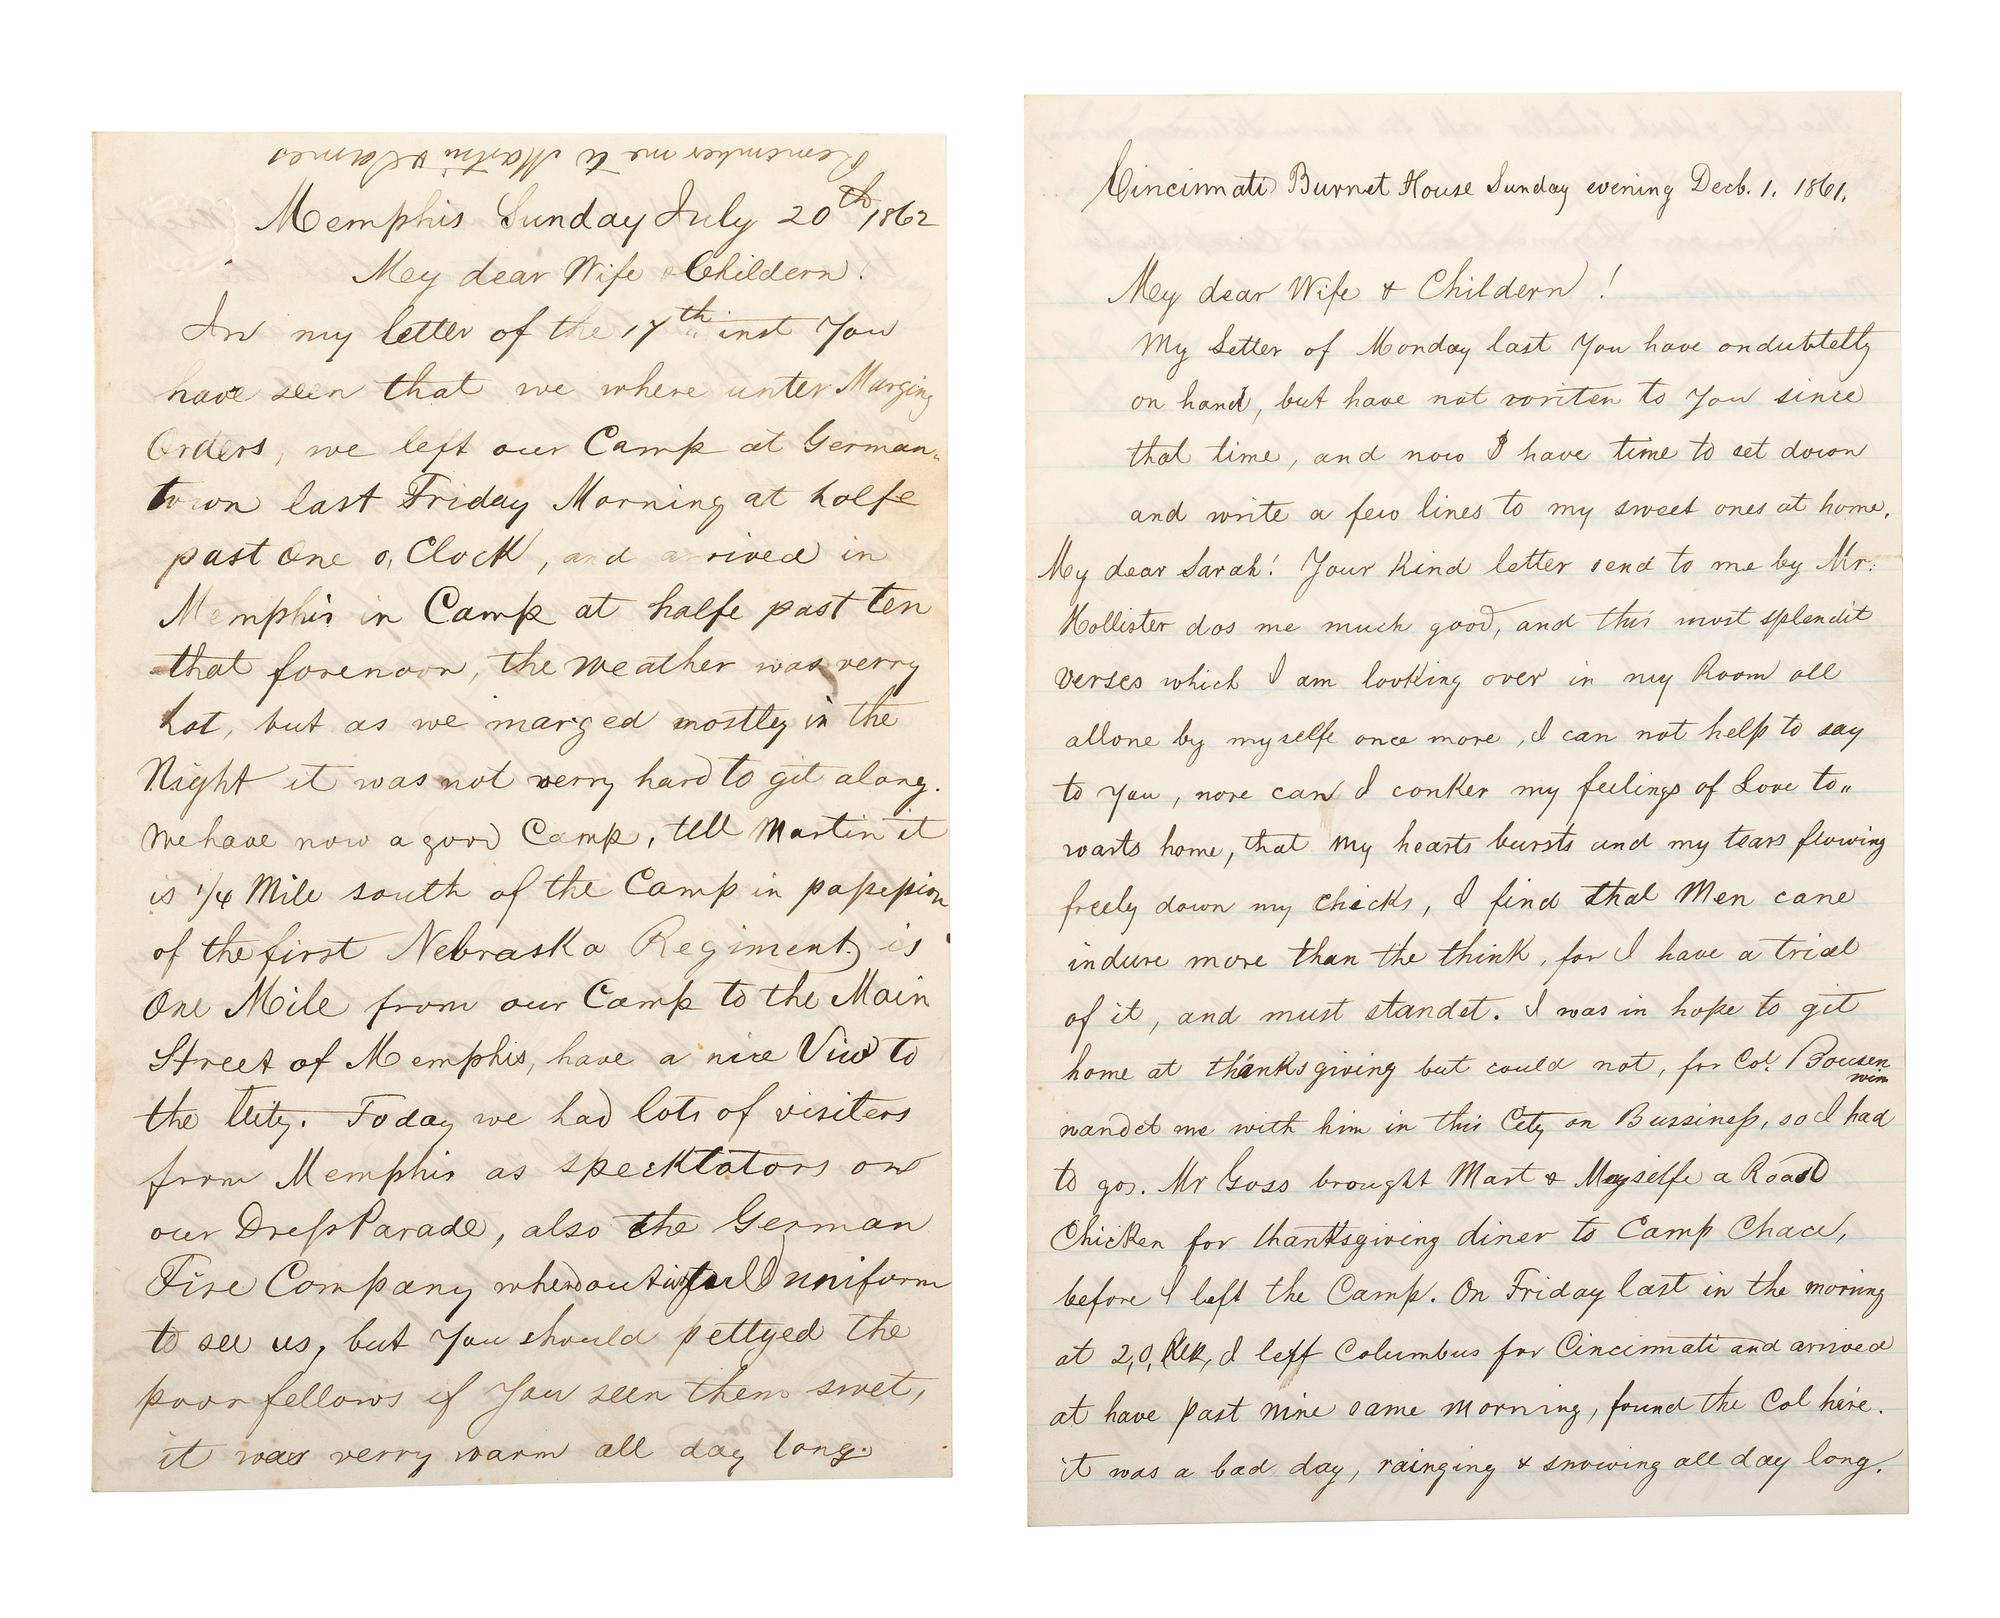 Remember me to Martin & James
Memphis Sunday July 20th, 1862
Mey dear Wife & Childern!
In my letter of the 17th inst You
have seen that we where unter Marging
Orders, we left our Camp at German-
town last Friday Morning at halfe
past One o, Clock, and arrived in
Memphis in Camp at halfe past ten
that forenoon, the weather was verry
hot, but as we marged mostley in the
Night it was not verry hard to git along.
We have now a good Camp, tell Martin it
is 1/4 Mile south of the Camp in
of the first Nebraska Regiment is
One Mile from our Camp to the Main
Street of Memphis, have a nice View to
the City. Today we had lots of visiters
from Memphis as specktators on
our Dress Parade, also the German
Fire Company where out in full uniform
to see us, but You should pettyed the
poor fellows if You seen them swet,
it was verry warm all day long.
Cincinnati Burnet House Sunday evening Decb. 1. 1861.
Mey dear Wife & Childern!
My Letter of Monday last You have ondubtetly
on hand, but have not voriten to You since
that time, and now I have time to set down
and write a few lines to my sweet ones at home.
My dear Sarah! Your Kind letter send to me by Mr.
Hollister dos me much good, and this most splendit
verses which I am looking over in my Room all
allone by myselfe once more, I can not help to say
to You, nore can I conker my feelings of Love to„
warts home, that my hearts bursts and my tears flowing
freely down my chicks, I find that Men cane
indure more than the think, for I have a trial
of it, and must standet. I was in hope to git
home at thanksgiving but could not, for Col. Bousen
win
wandet me with him in this City on Bussiness, so I had
to go. Mr Goss brought Mart & Mayselfe a Roast
Chicken for thanksgiving diner to Camp Chace,
before I left the Camp. On Friday last in the morning
at 2,0, Clk, I left Columbus for Cincinnati and arrived
at have past nine same morning, found the Col here.
it was a bad day, rainging & snowing all day long.